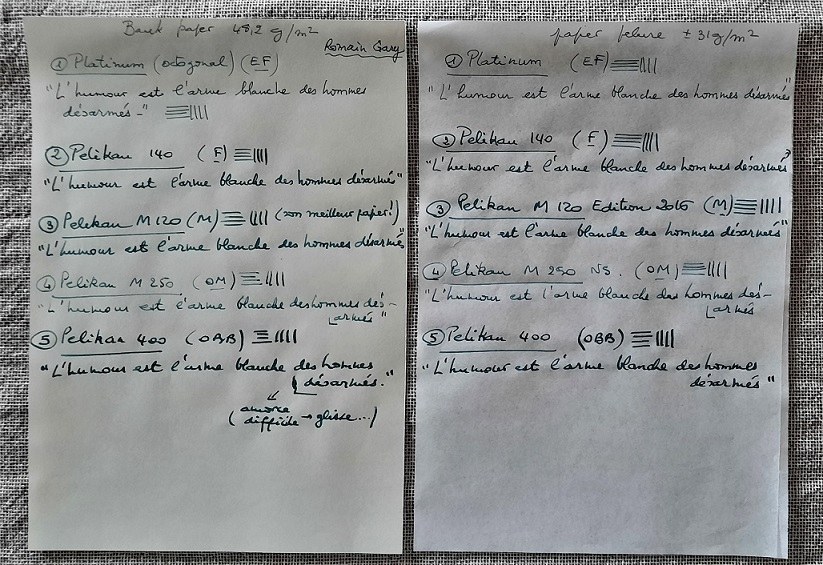 Bank paper 48,2 g/m²
Romain Gary
① Platinum (octogonal) (EF)
"L'humour est l'arme blanche des hommes
désarmés."
② Pelikan 140 (F)
"L'humour est l'arme blanche des hommes désarmés"
③ Pelikan M120 (M) (son meilleur papier!)
"L'humour est l'arme blanche des hommes désarmés"
④ Pelikan M 250 (OM)
"L'humour est l'arme blanche des hommes dés-
armés"
⑤ Pelikan 400 (OBB)
"L'humour est l'arme blanche des hommes
désarmés."
(amorce
difficile → glisse...)
paper pelure ± 31g/m²
① Platinum (EF)
"L'humour est l'arme blanche des hommes désarmés"
② Pelikan 140 (F)
"L'humour est l'arme blanche des hommes désarmés"
③ Pelikan M 120 Edition 2016 (M)
"L'humour est l'arme blanche des hommes désarmés"
④ Pelikan M 250 NS. (OM)
"L'humour est l'arme blanche des hommes dés-
armés
⑤ Pelikan 400 (OBB)
"L'humour est l'arme blanche des hommes
désarmés"